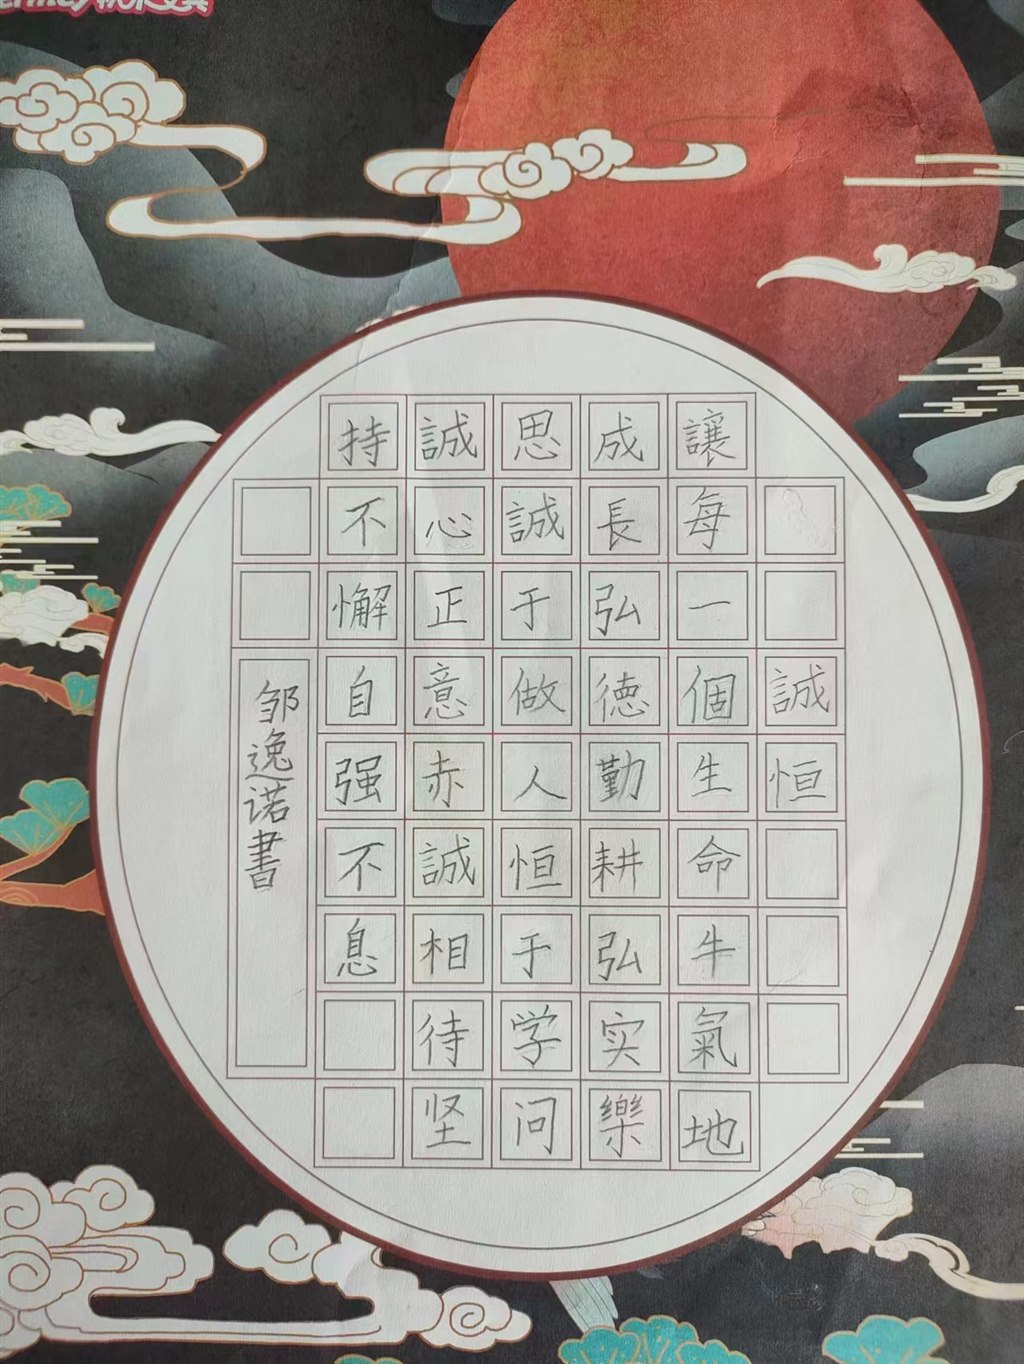 誠恒
讓每一個生命牛氣地
成長弘德勤耕弘实樂
思誠于做人恒于学问
誠心正意赤誠相待坚
持不懈自强不息
邹逸诺書